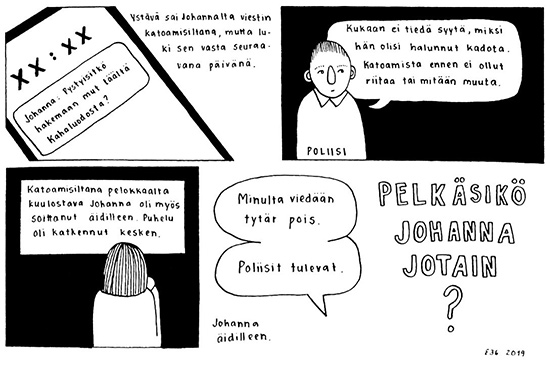 XX:XX
Johanna: Pystyisitkö
hakemaan mut täältä
Kahaluodosta?
Ystävä sai Johannalta viestin
katoamisiltana, mutta lu-
ki sen vasta seuraa-
vana päivänä.
Kukaan ei tiedä syytä, miksi
hän olisi halunnut kadota.
Katoamista ennen ei ollut
riitaa tai mitään muuta.
POLIISI
Katoamisiltana pelokkaalta
kuulostava Johanna oli myös
soittanut äidilleen. Puhelu
oli katkennut kesken.
Minulta viedään
tytär pois.
Poliisit tulevat.
Johanna
äidilleen.
PELKÄSIKÖ
JOHANNA
JOTAIN
?
E36 2019